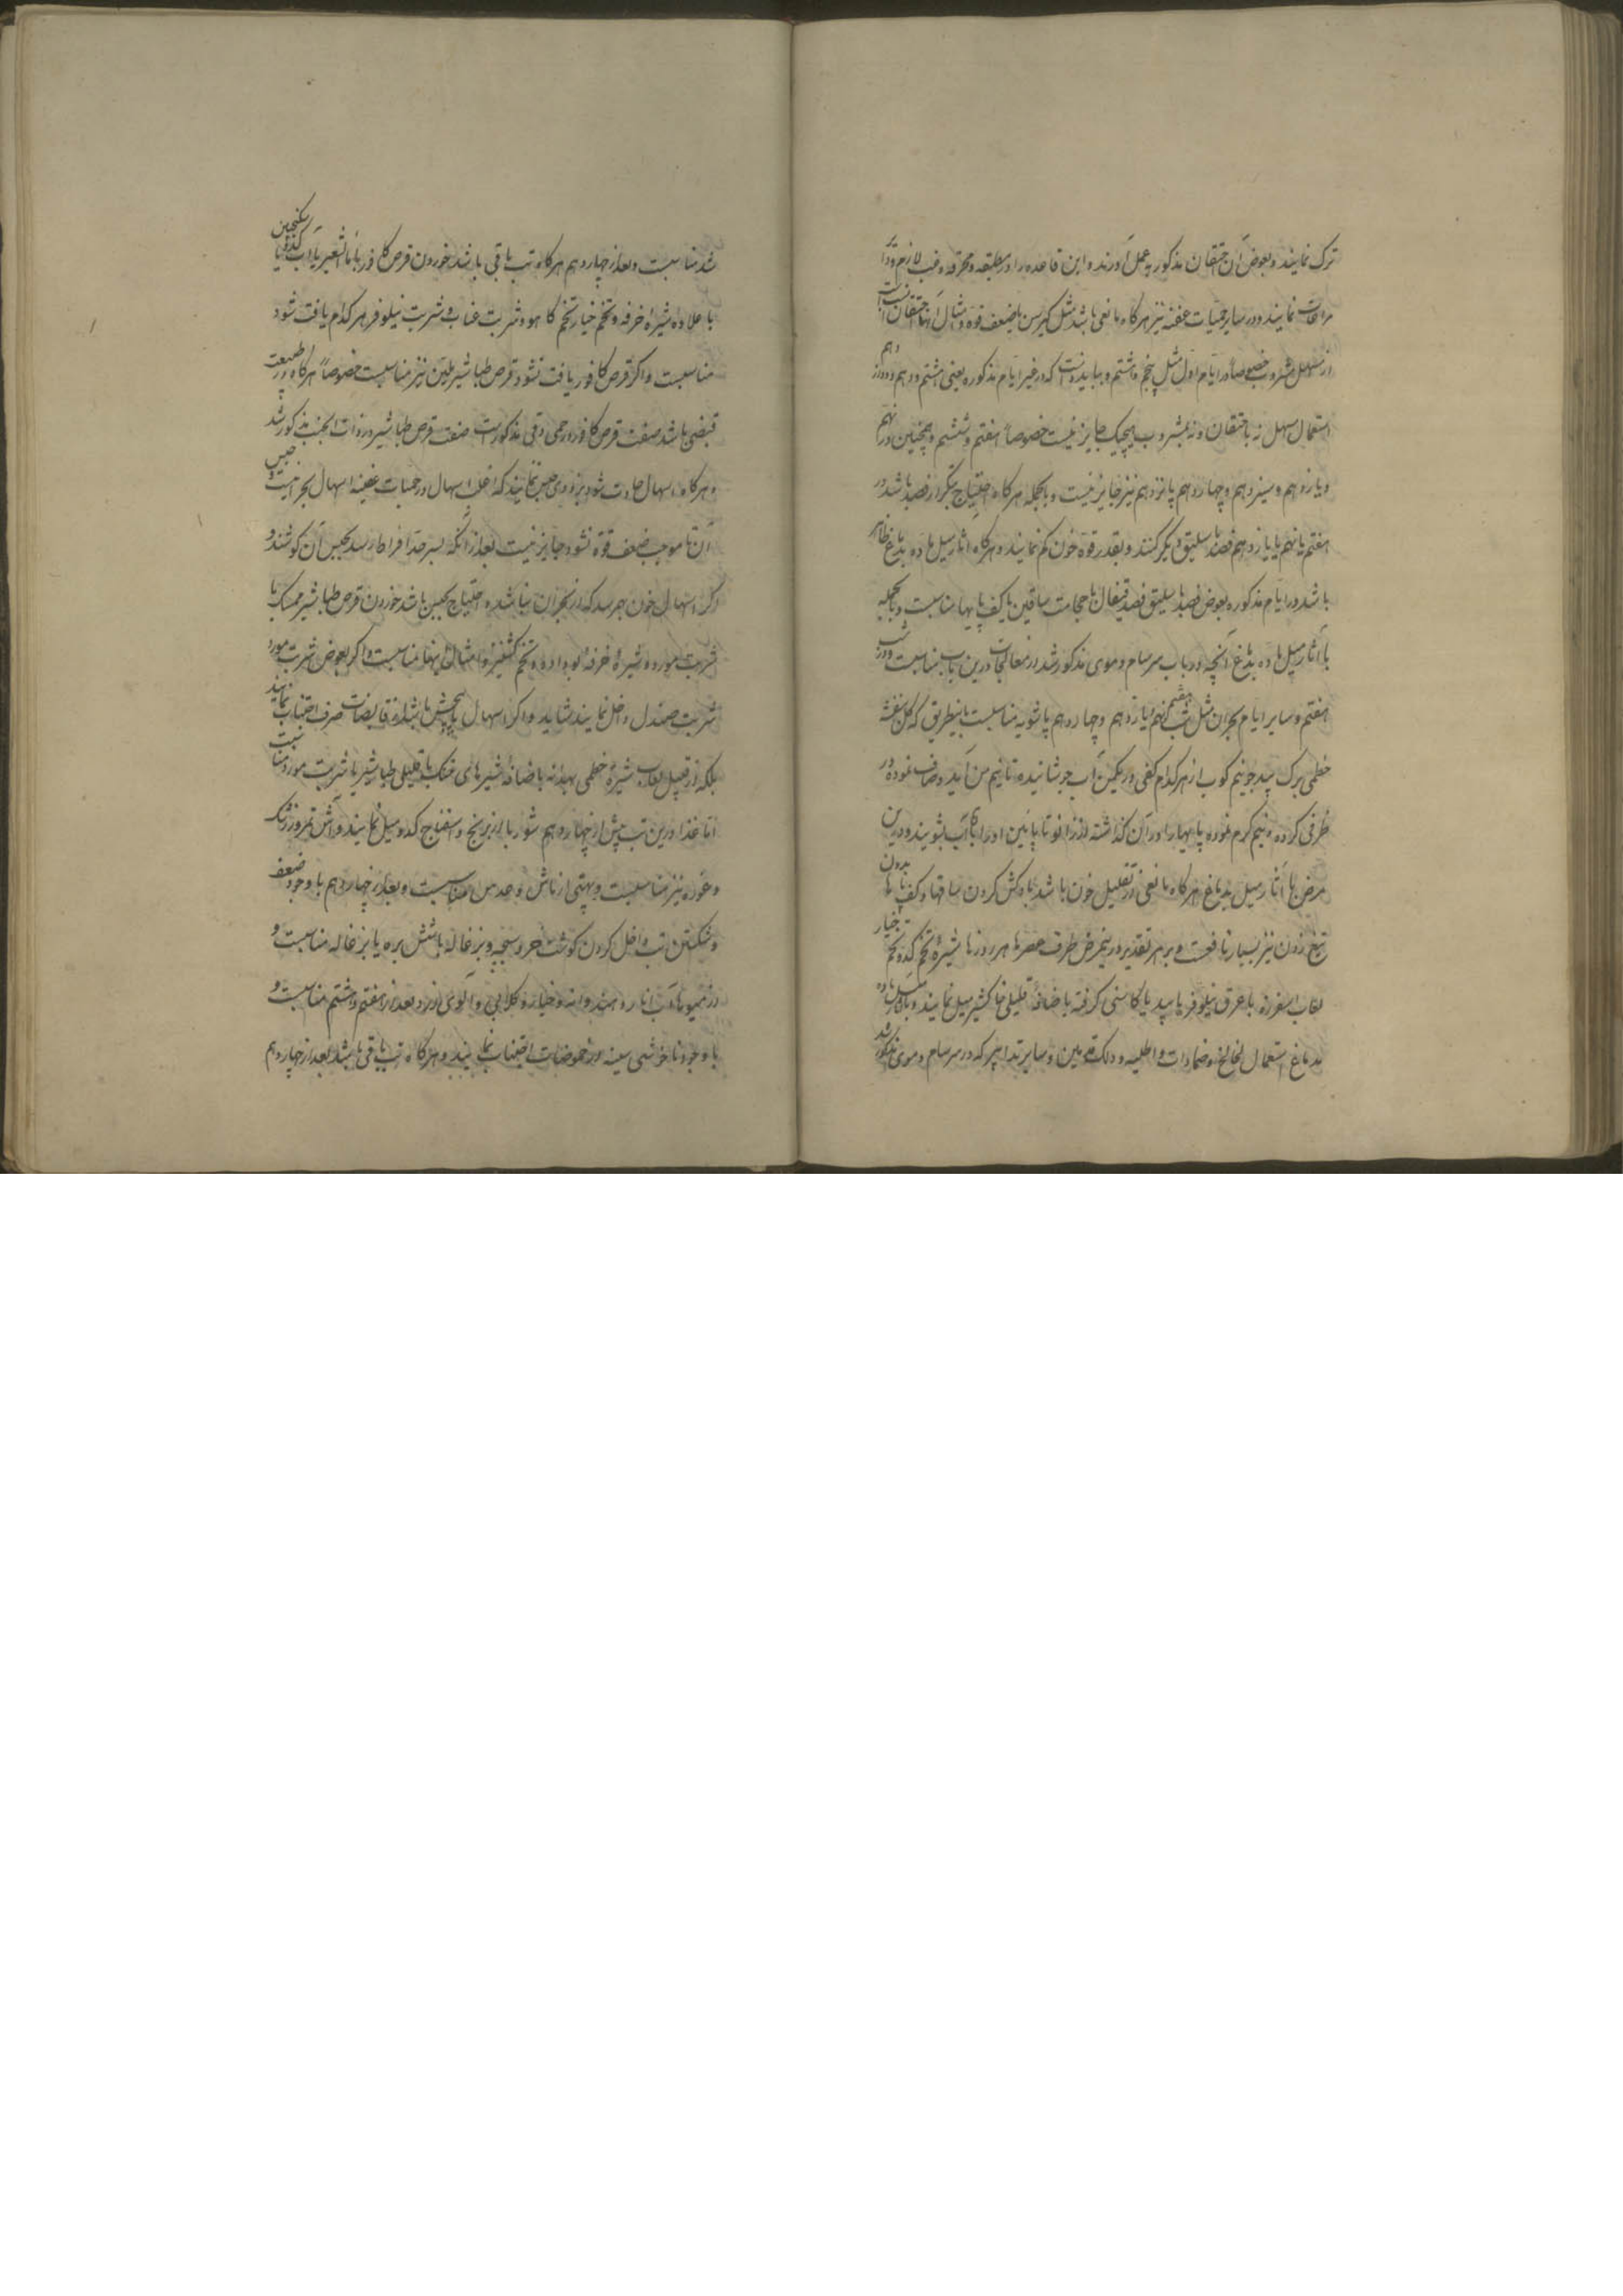 ترک نمایند و بعوض آن حتقان مذکور بعمل آورند و این قاعده را در مطبقه و محرقه و غب لازم و دا
مراعات نمایند و در سایر حمیات عفنه نیز هرگاه مانعی باشد مثل کبر سن یا ضعف قوه و امثال آنها حتقان انسب است
از مسهل مشروب خصوصا در ایام اول مثل پنجم و هشتم و بباید دانست که در غیر ایام مذکوره یعنی هشتم و دهم و دوازدهم
استعمال مسهل نه باحتقان و نه بمشروب بهیچیک جایز نیست خصوصا هفتم و ششم و همچنین در نهم
و یازدهم و سیزدهم و چهاردهم پانزدهم نیز جایز نیست و بالجمله هرگاه احتیاج بتکرار فصد باشد در
هفتم یا نهم یا یازدهم فصد باسلیق دیگر کنند و بقدر قوه خون کم نمایند و هرگاه آثار میل ماده بدماغ ظاهر
باشد در ایام مذکوره بعوض فصد باسلیق فصد قیفال یا حجامت ساقین یا کف پایها مناسبست و بالجمله
با آثار میل ماده بدماغ آنچه در باب سرسام دموی مذکور شد در معالجات درین باب مناسبست و در شب
هفتم و سایر ایام بحران مثل شب نهم یازدهم و چهاردهم پاشویه مناسبست باینطریق که گل بنفشه
خطمی برک بید جو نیم کوب از هر کدام کفی در یکمن آب جوشانیده تا نیم من آید و صاف نموده در
ظرفی کرده و نیم گرم نموده پایها را در آن گذاشته از زانو تا پائین او را با آب بشویند و درین
مرض با آثار میل بدماغ هرگاه مانعی از تقلیل خون باشد بادکش کردن ساقها و کف پاها بدون
تیغ زدن نیز بسیار نافعست و بر هر تقدیر درینمرض طرف عصرها هر روز با شیره تخم کدو تخم خیار
لعاب اسفرزه با عرق نیلوفر یا بید یا کاسنی گرفته باضافه قلیلی خاکشیر میل نمایند و با آثار میل ماده
بدماغ استعمال لخالخ و ضمادات و اطلیه و دلک قدمین و سایر تدابیر که در سرسام دموی مذکور شد
شد مناسبست و بعد از چهاردهم هرگاه تب باقی باشد خوردن قرص کافور با ماءالشعیر یا آب کدو یا سکنجبین
با علاوه شیره خرفه و تخم خیار تخم کاهو و شربت عناب و شربت نیلوفر هر کدام یافت شود
مناسبست و اگر قرص کافور یافت نشود قرص طباشیر ملین نیز مناسبست خصوصا هرگاه در طبیعت
قبضی باشد صفت قرص کافور در حمی دقی مذکورست صفت قرص طباشیر در ذات الجنب مذکور شد
و هرگاه اسهال حادث شود بزودی حبس ننمایند که اغلب اسهال در حمیات عفنیه اسهال بحرانیست و حبس
آن تا موجب ضعف قوه نشود جایز نیست بعد از آنکه بسر حد افراط رسد بحبس آن کوشند و
اگر اسهال خون بهم رسد که از بحران نباشد و احتیاج بحبس باشد خوردن قرص طباشیر ممسک با
شربت مورد و شیره خرفه بو داده و تخم گشنیز و امثال اینها مناسبست و اگر بعوض شربت مورد
شربت صندل داخل نمایند شاید و اگر اسهال با پیچش باشد از قابضات صرف اجتناب نمایند
بلکه از قبیل لعاب شیره خطمی بهدانه باضافه شیرهای خنک با قلیلی طباشیر یا شربت مورد مناسبست
اما غذا درین تب پیش از چهاردهم شوربا از برنج و اسفناج کدو میل نمایند و آش تمر و زرشک
و غوره نیز مناسبست و بهتی از ماش و عدس مناسبست و بعد از چهاردهم با وجود ضعف
و شکستن تب داخل کردن گوشت خروسبچه و بزغاله یا شش بره یا بزغاله مناسبست و
از میوها آب انار و هندوانه و خیار و گلابی و آلوی زرد بعد از هفتم و هشتم مناسبست و
با وجود ناخوشی سینه از حموضات اجتناب نمایند و هرگاه تب باقی باشد بعد از چهاردهم